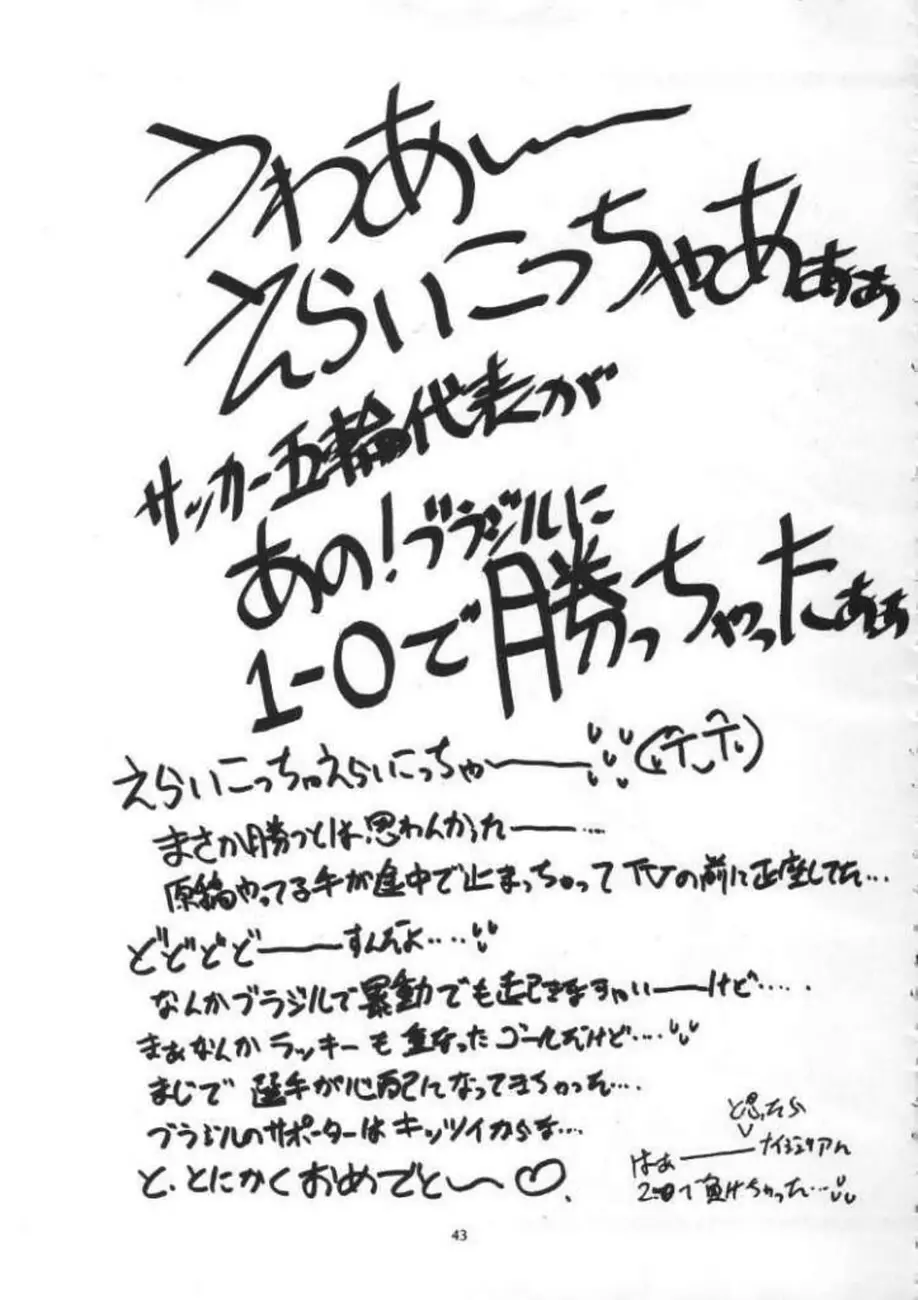 うわあぃーー
えらいこっちゃあぁぁ
サッカー五輪代表が
あの!ブラジルに
1-0で勝っちゃったぁぁ
えらいこっちゃえらいこっちゃーーー
まさか勝つとは思わんかった――…
原稿やってる手が途中で止まっちゃってTVの前に正座してた…
どどどど―――すんだよ‥‥
なんかブラジルで暴動でも起きなきゃいーーけど‥‥.
まぁなんかラッキーも重なったゴールだけど‥‥
まじで選手が心配になってきちゃった‥‥
ブラジルのサポーターはキッツイからな…
と、とにかくおめでと〜♡.
と思ったら
はぁ―――ナイジェリアに
2-0で負けちゃった…
43